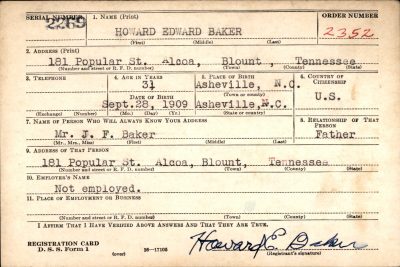 SERIAL NUMBER 1. NAME (Print) ORDER NUMBER
2269 HOWARD EDWARD BAKER 2352
(First) (Middle) (Last)
2. ADDRESS (Print)
181 Popular St. Alcoa, Blount , Tennessee
(Number and street or R. F. D. number) (Town) (County) (State)
3. TELEPHONE 4. AGE IN YEARS 5. PLACE OF BIRTH 6. COUNTRY OF CITIZENSHIP
31 Asheville, N.C.
(Town or county)
DATE OF BIRTH
Sept.28, 1909 Asheville,N.C. U.S.
(Exchange) (Number) (Mo.) (Day) (Yr.) (State or country)
7. NAME OF PERSON WHO WILL ALWAYS KNOW YOUR ADDRESS 8. RELATIONSHIP OF THAT PERSON
Mr. J. F. Baker Father
(Mr., Mrs., Miss) (First) (Middle) (Last)
9. ADDRESS OF THAT PERSON
181 Popular St. Alcoa, Blount, Tennessee
(Number and street or R. F. D. number) (Town) (County) (State)
10. EMPLOYER'S NAME
Not employed.
11. PLACE OF EMPLOYMENT OR BUSINESS
(Number and street or R. F. D. number) (Town) (County) (State)
I AFFIRM THAT I HAVE VERIFIED ABOVE ANSWERS AND THAT THEY ARE TRUE.
REGISTRATION CARD
D. S. S. Form 1 (over) 16—17105 Howard E. Baker
(Registrant's signature)